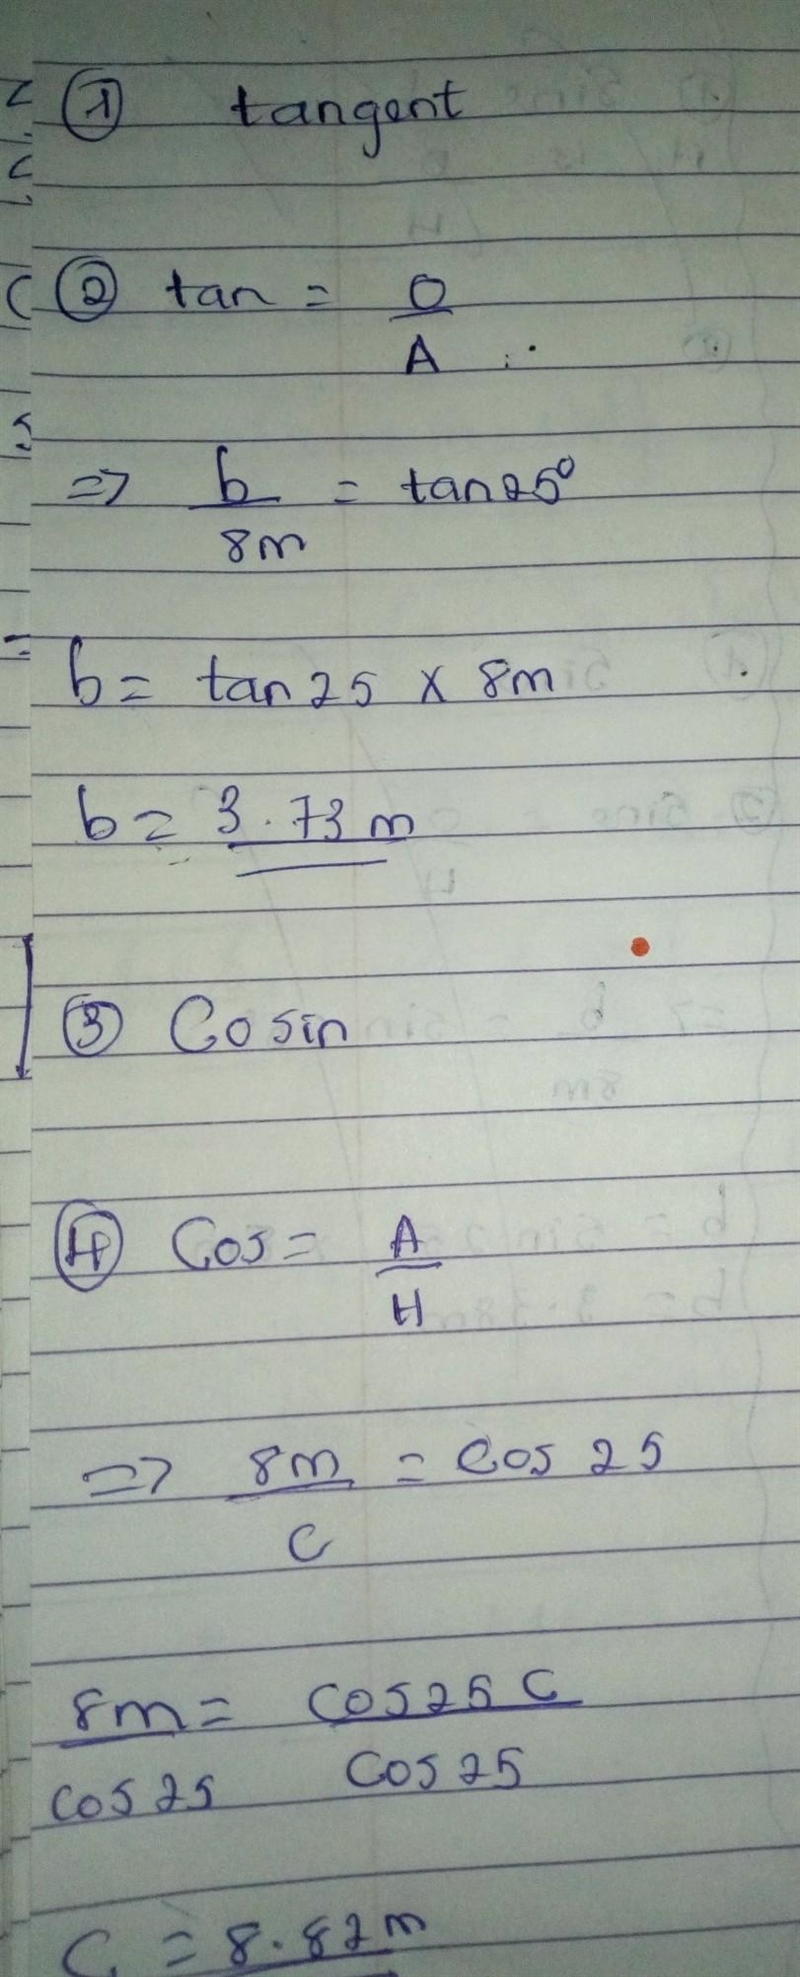 ① tangent
② tan = O
A
=> b = tan 25°
8m
b = tan 25 x 8m
b = 3.73 m
③ Cosin
④ Cos = A
H
=> 8m = Cos 25
C
8m = Cos 25 C
Cos 25 Cos 25
C = 8.82 m